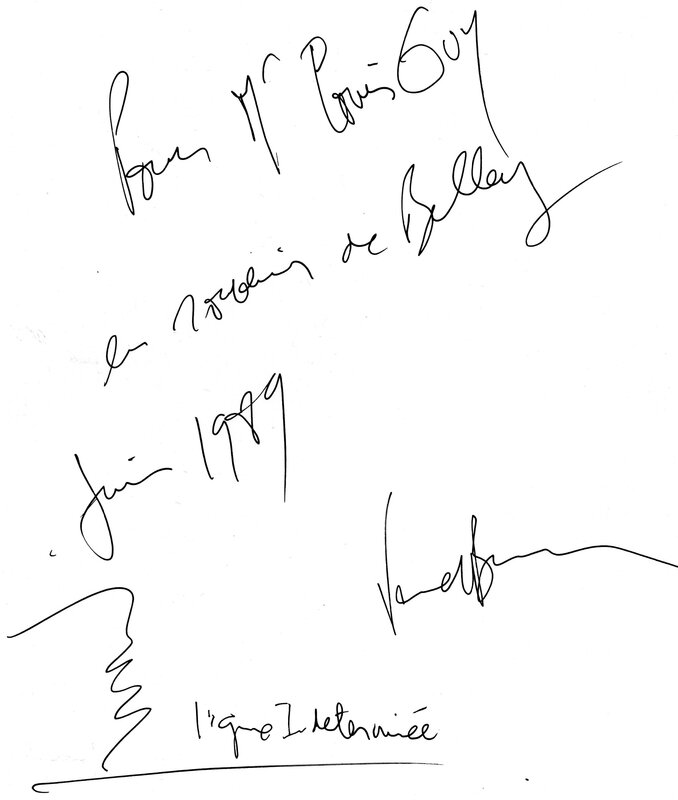 Pour Mr Louis Guy
en souvenir de Belley
Juin 1989
ligne Indeterminée